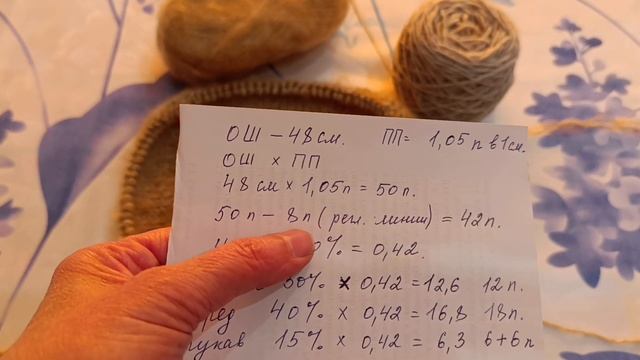 ОШ – 48 см. ПП = 1,05 п в 1 см.
ОШ х ПП
48 см х 1,05п = 50п.
50п – 8п (регл. линии) = 42п.
0% = 0,42.
30% х 0,42 = 12,6 12п.
ред 40% х 0,42 = 16,8 18п.
рукав 15% х 0,42 = 6,3 6+6п